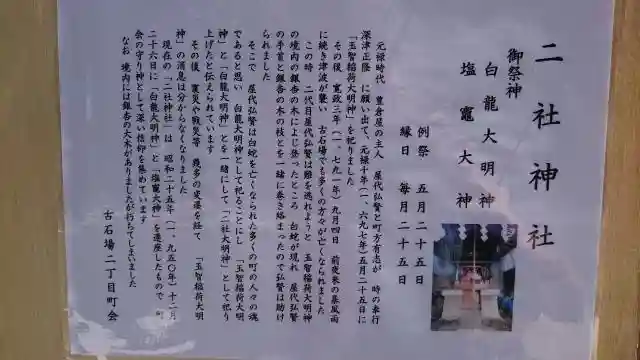 二社神社
御祭神
白龍大明神
塩竈大神
例祭 五月二十五日
縁日 毎月二十五日
元禄時代 豊倉屋の主人 屋代弘賢と町方有志が 時の奉行
深津正隆 に願い出て、元禄十年(一、六九七年)五月二十五日に
「玉智稲荷大明神」を祀りました
その後、寛政三年(一、七九一年)九月四日 前夜来の暴風雨
に続き津波が襲い 古石場でも多くの方々が亡くなられました
この時 二代目屋代弘賢は難を逃れようと 玉智稲荷大明神
の境内の銀杏の木によじ登ったところ 白蛇が現れ 屋代弘賢
の手首と銀杏の木の枝とを一緒に巻き絡まったので弘賢は助け
られました
そこで 屋代弘賢は白蛇を亡くなられた多くの町の人々の魂
であると思い 白龍大明神として祀ることにし 「玉智稲荷大明
神」と「白龍大明神」とを一緒にして「二社大明神」として祀り
上げたと伝えられています
その後 震災や戦災等 幾多の変遷を経て 「玉智稲荷大明
神」の消息は分からなくなりました
現在の「二社神社」は 昭和二十五年(一、九五〇年)十二月
二十六日に「白龍大明神」と「塩竈大神」を遷座したもので 町
会の守り神として深い信仰を集めています
なお 境内には銀杏の大木がありましたが朽ちてしまいました
古石場二丁目町会